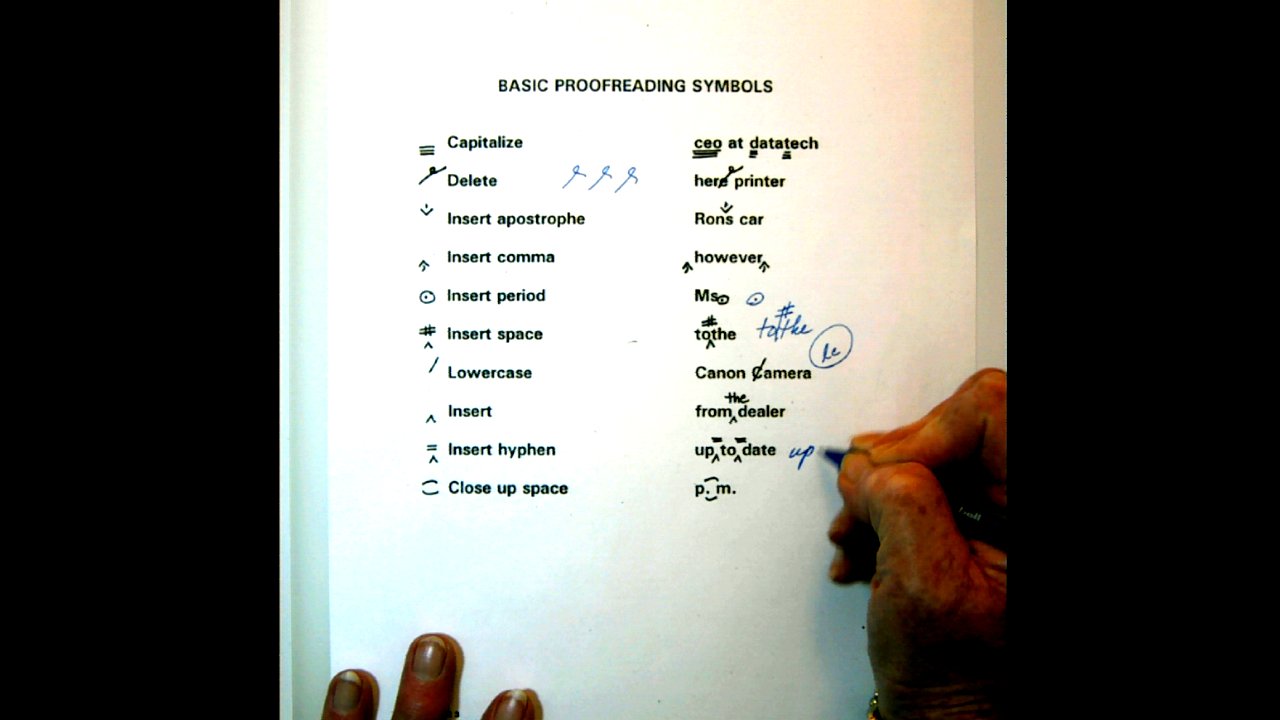 BASIC PROOFREADING SYMBOLS
Capitalize ceo at datatech
Delete here printer
Insert apostrophe Rons car
Insert comma however
Insert period Ms
# Insert space # tothe # tothe
lc
Lowercase Canon Camera
the
Insert from dealer
Insert hyphen up to date up
Close up space p. m.